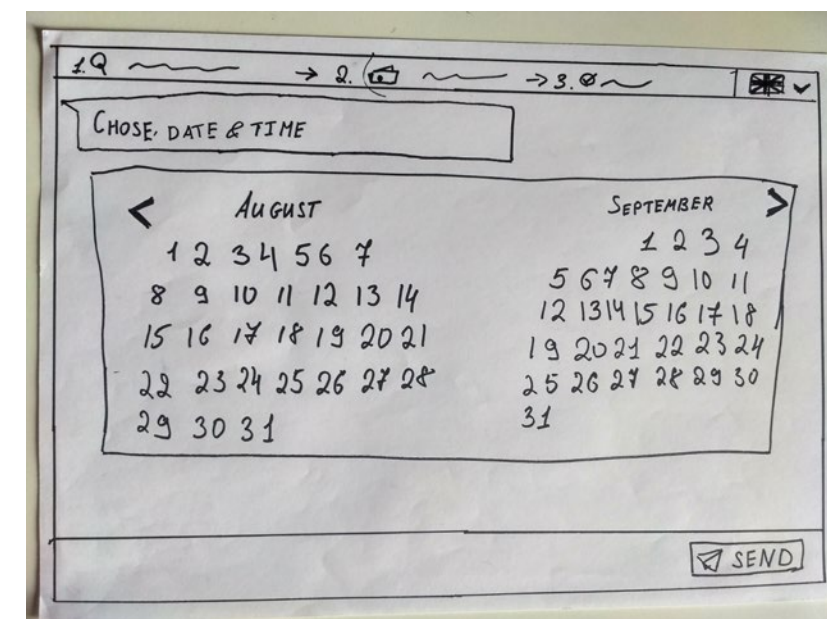 1.
→ 2.
→ 3.
CHOSE, DATE & TIME
< AUGUST
1 2 3 4 5 6 7
8 9 10 11 12 13 14
15 16 17 18 19 20 21
22 23 24 25 26 27 28
29 30 31
SEPTEMBER >
1 2 3 4
5 6 7 8 9 10 11
12 13 14 15 16 17 18
19 20 21 22 23 24
25 26 27 28 29 30
31
SEND